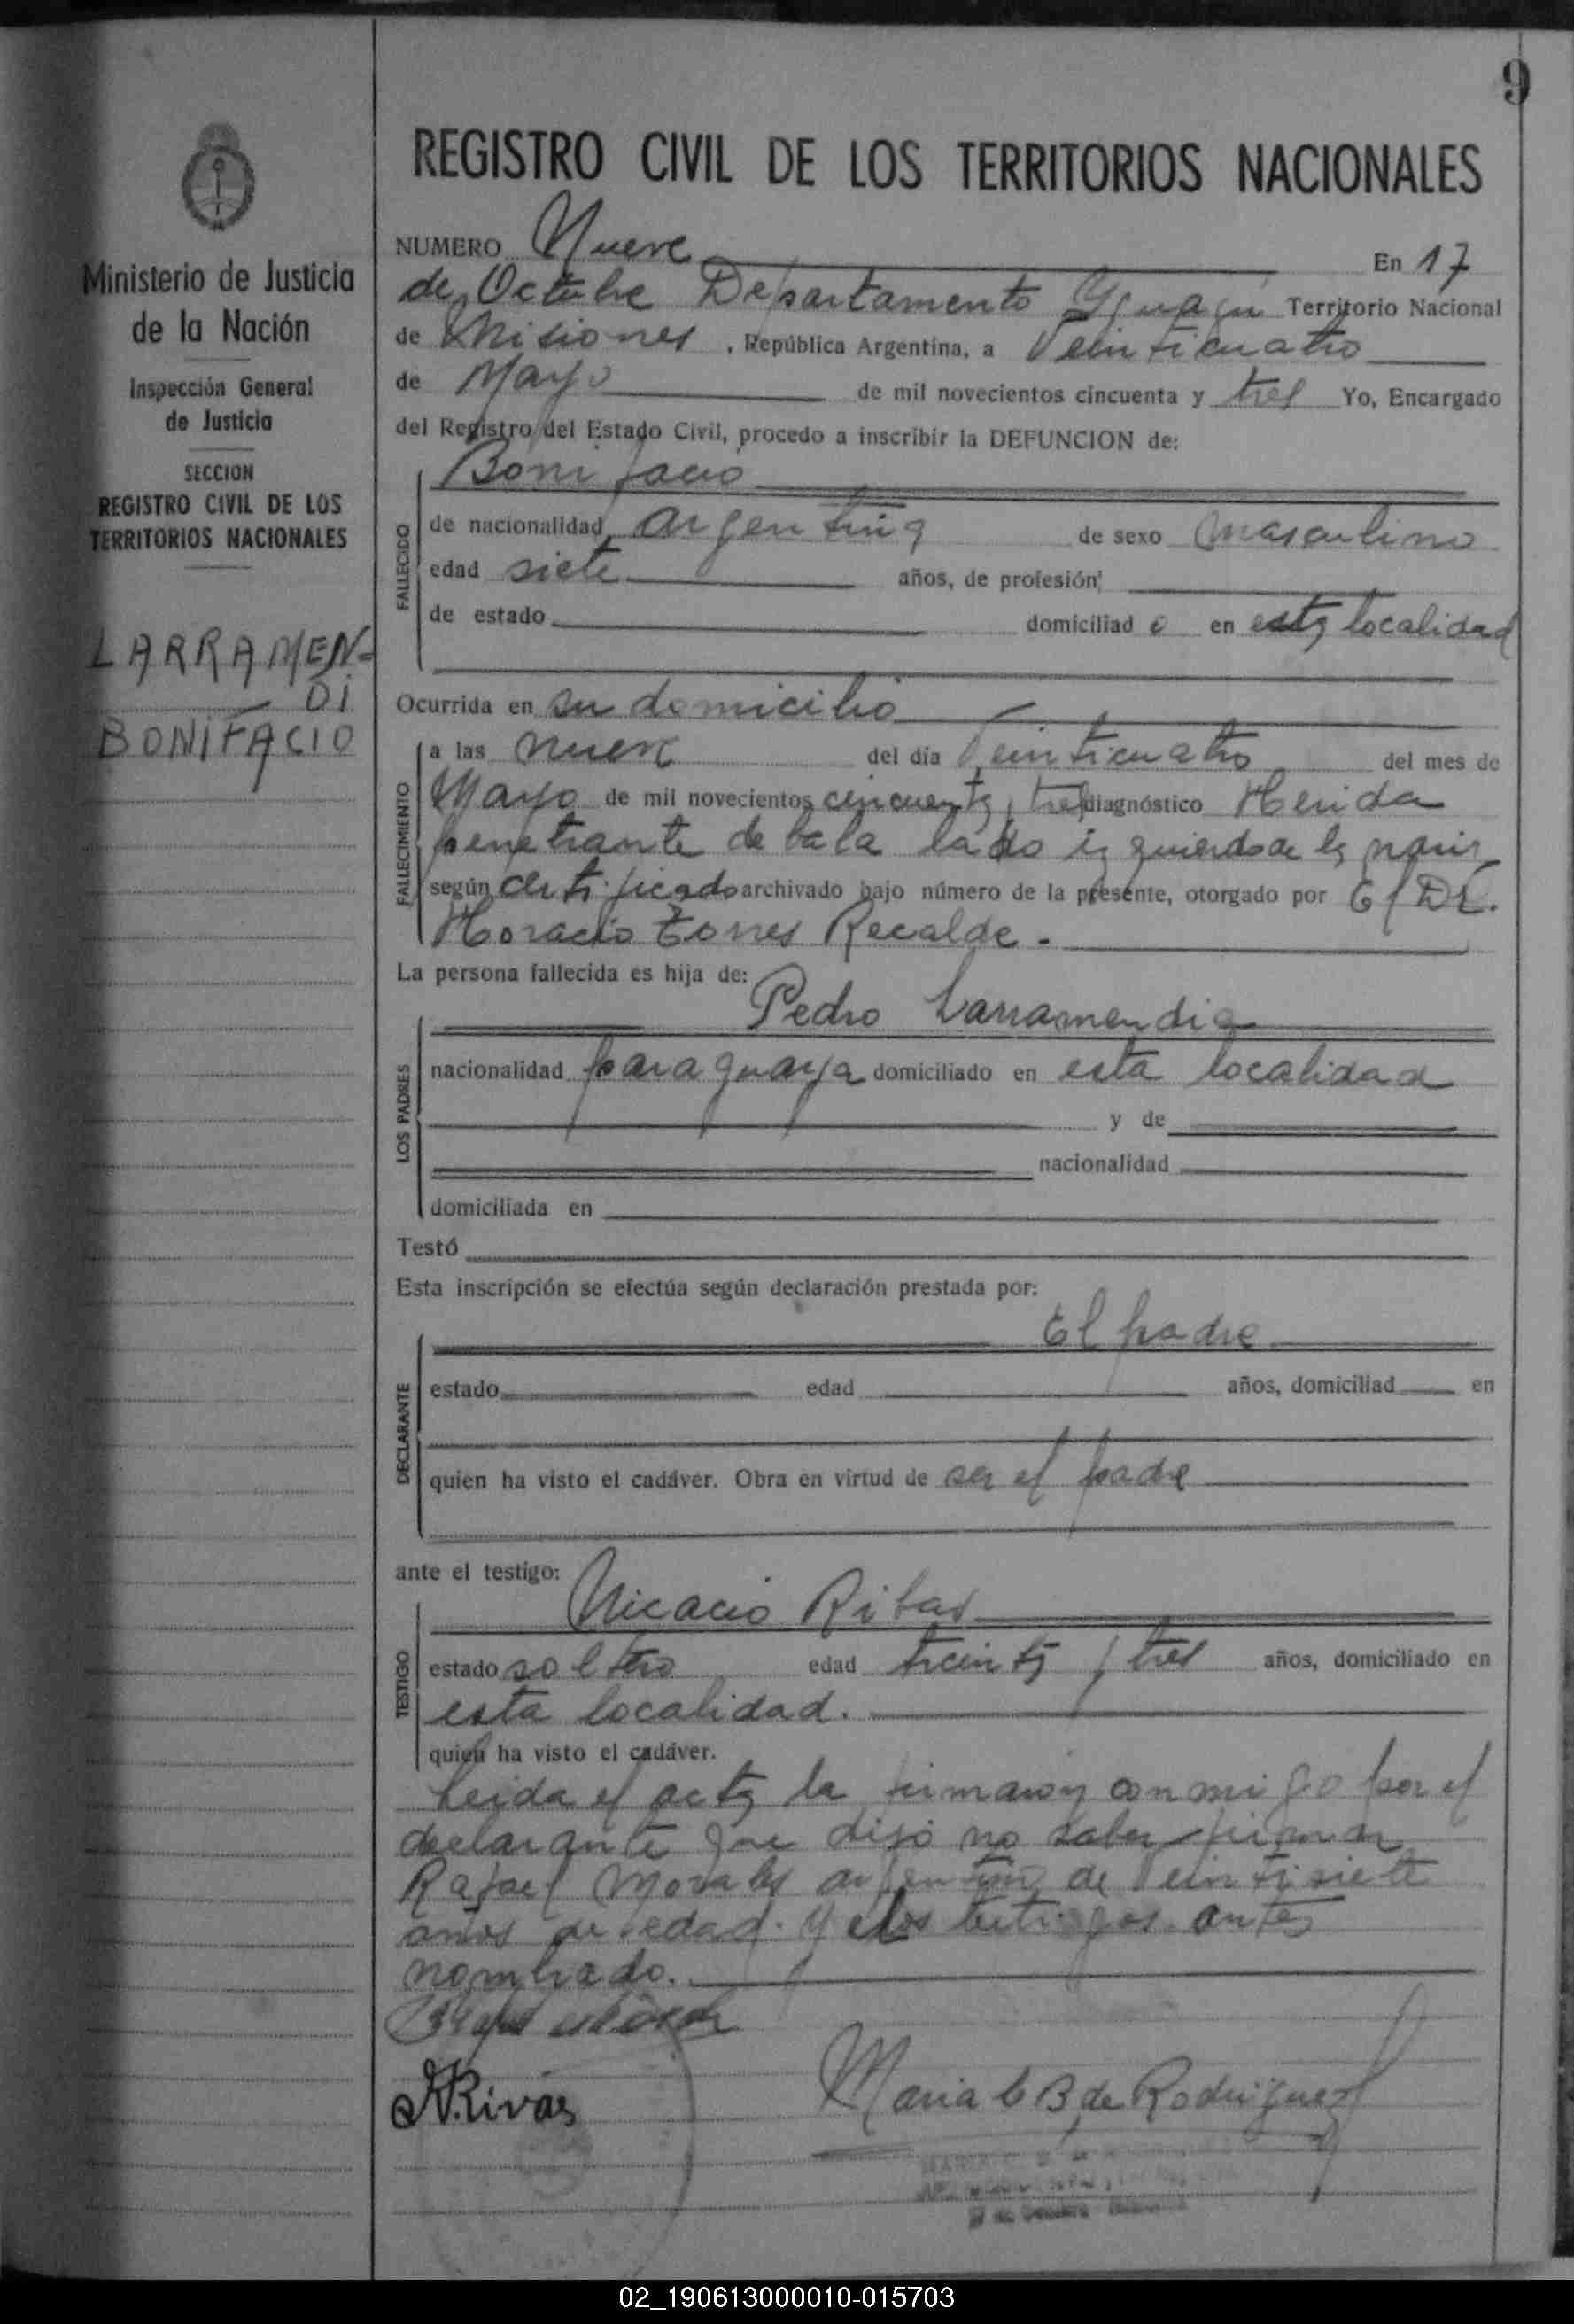 9
REGISTRO CIVIL DE LOS TERRITORIOS NACIONALES
Ministerio de Justicia
de la Nación
Inspección General
de Justicia
SECCION
REGISTRO CIVIL DE LOS
TERRITORIOS NACIONALES
LARRAMEN-
DI
BONIFACIO
NUMERO Nueve En 17
de Octubre Departamento Yguazú Territorio Nacional
de Misiones , República Argentina, a Veinticuatro
de Mayo de mil novecientos cincuenta y tres Yo, Encargado
del Registro del Estado Civil, procedo a inscribir la DEFUNCION de:
Bonifacio
FALLECIDO
de nacionalidad argentina de sexo masculino
edad siete años, de profesión
de estado domiciliad o en esta localidad
Ocurrida en su domicilio
FALLECIMIENTO
a las nueve del día Veinticuatro del mes de
Mayo de mil novecientos cincuenta y tres diagnóstico Herida
penetrante de bala lado izquierdo de la nariz
según certificado archivado bajo número de la presente, otorgado por El Dr.
Horacio Torres Recalde.
La persona fallecida es hija de:
LOS PADRES
Pedro Larramendia
nacionalidad paraguaya domiciliado en esta localidad
y de
nacionalidad
domiciliada en
Testó
Esta inscripción se efectúa según declaración prestada por:
DECLARANTE
El padre
estado edad años, domiciliad en
quien ha visto el cadáver. Obra en virtud de ser el padre
ante el testigo:
TESTIGO
Nicacio Ribas
estado soltero edad treinta y tres años, domiciliado en
esta localidad.
quien ha visto el cadáver.
Leida el acta la firmaron conmigo por el
declarante que dijo no saber firmar
Rafael Morales argentino de Veintisiete
años de edad. y los testigos antes
nombrado.
N.Rivas
Maria C B de Rodriguez
02_190613000010-015703